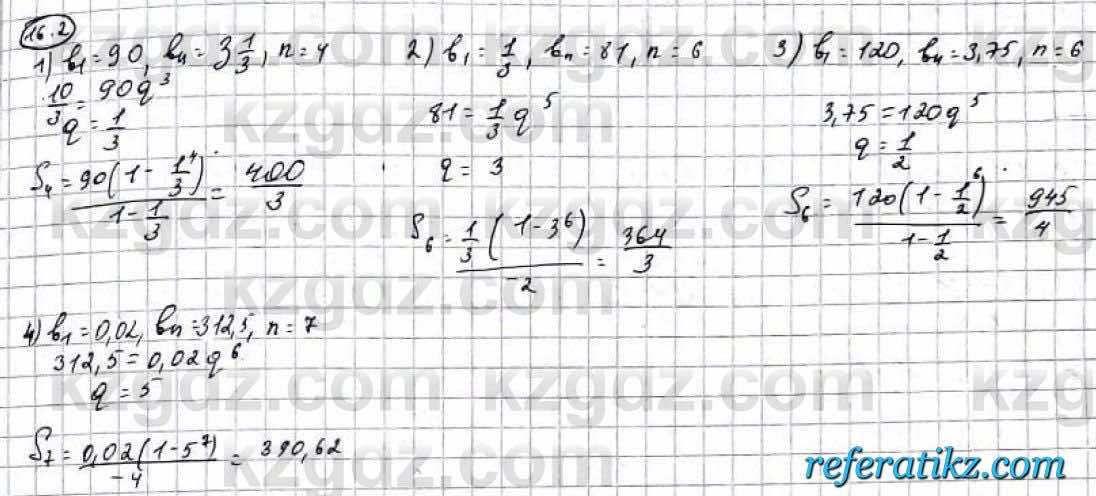 16.2
1) b₁ = 90, bₙ = 3 1/3, n = 4
10/3 = 90q³
q = 1/3
S₄ = 90(1 - 1/3⁴) / (1 - 1/3) = 400/3
2) b₁ = 1/3, bₙ = 81, n = 6
81 = 1/3 q⁵
q = 3
S₆ = 1/3 (1 - 3⁶) / -2 = 364/3
3) b₁ = 120, bₙ = 3,75, n = 6
3,75 = 120q⁵
q = 1/2
S₆ = 120(1 - 1/2⁶) / (1 - 1/2) = 945/4
4) b₁ = 0,02, bₙ = 312,5, n = 7
312,5 = 0,02q⁶
q = 5
S₇ = 0,02(1 - 5⁷) / -4 = 390,62
kzgdz.com
referatikz.com